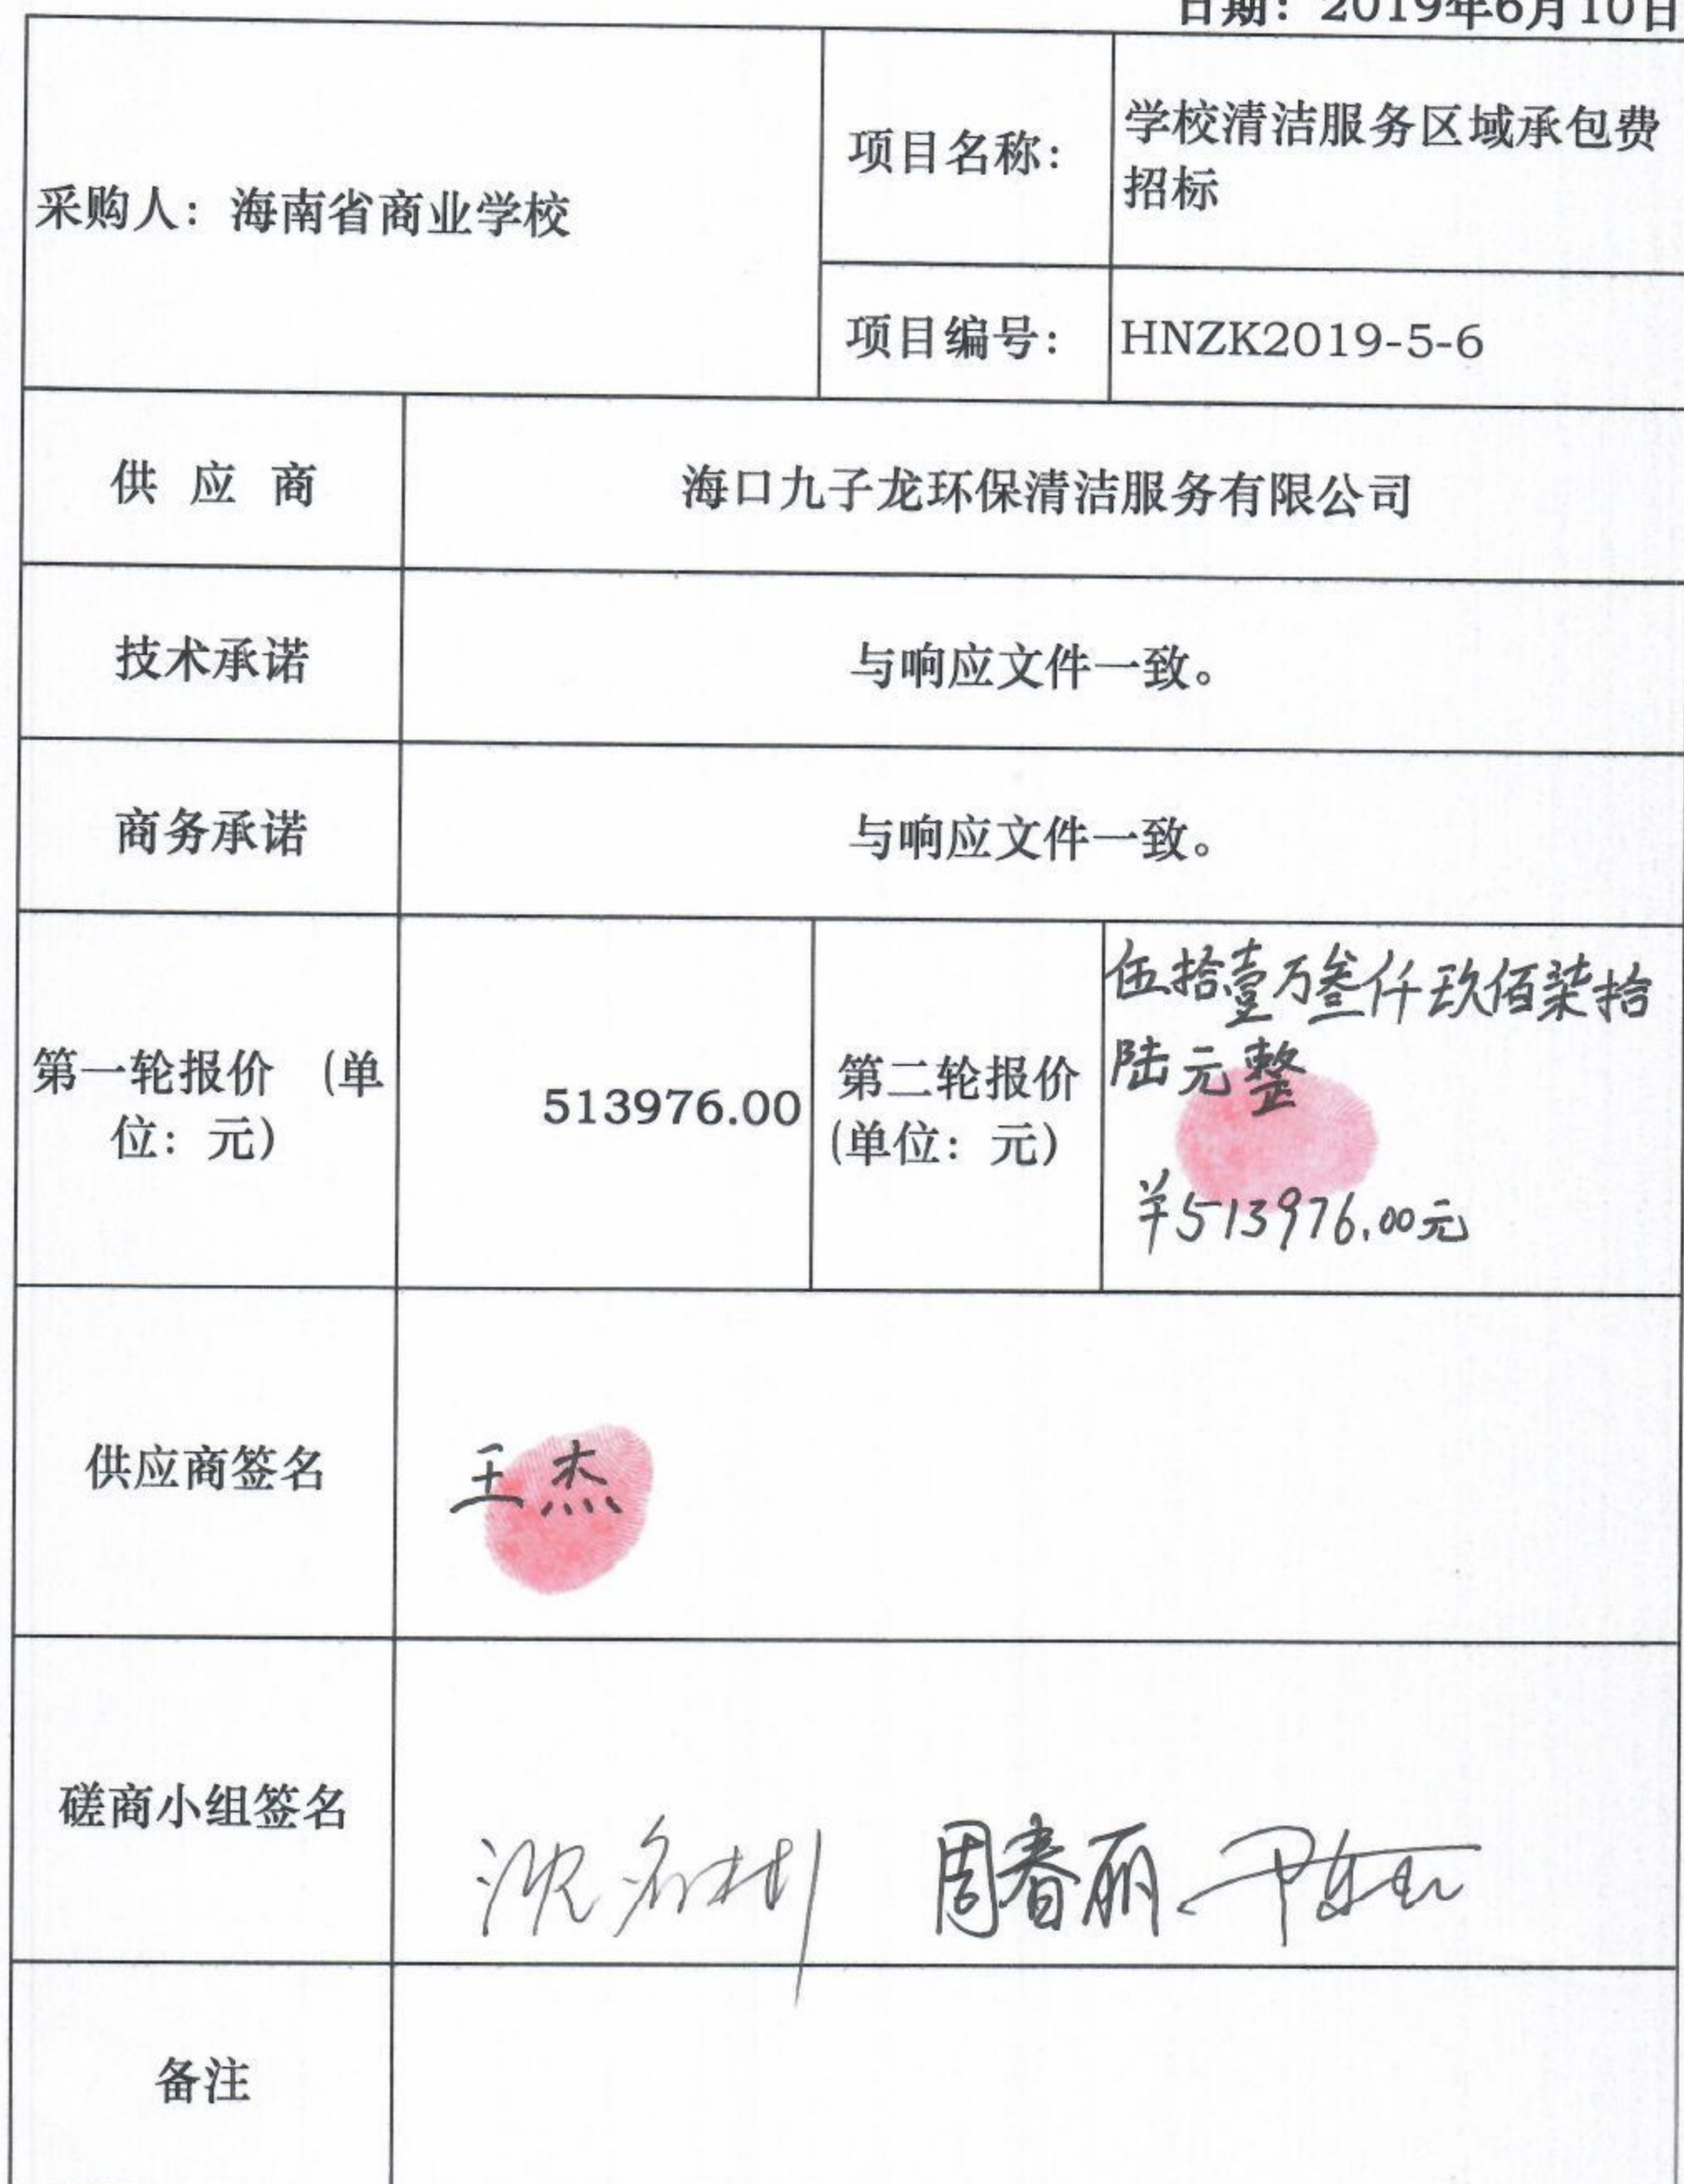 日期：2019年6月10日
采购人：海南省商业学校
项目名称：
学校清洁服务区域承包费
招标
项目编号：
HNZK2019-5-6
供 应 商
海口九子龙环保清洁服务有限公司
技术承诺
与响应文件一致。
商务承诺
与响应文件一致。
第一轮报价 (单
位：元)
513976.00
第二轮报价
(单位：元)
伍拾壹万叁仟玖佰柒拾
陆元整
¥513976.00元
供应商签名
王杰
磋商小组签名
周春丽
备注